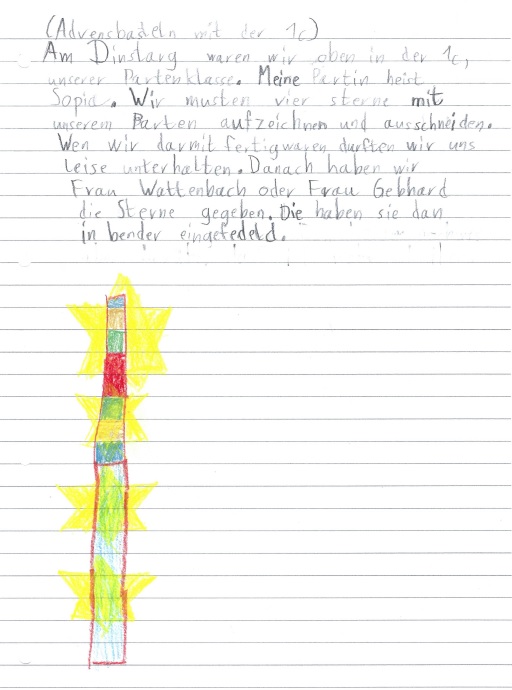 (Advensbadeln mit der 1c)
Am Dinstarg waren wir oben in der 1c,
unserer Partenklasse. Meine Partin heist
Sopia. Wir musten vier sterne mit
unserem Parten aufzeichnen und ausschneiden.
Wen wir darmit fertigwaren durften wir uns
Leise unterhalten. Danach haben wir
Frau Wattenbach oder Frau Gebhard
die Sterne gegeben. Die haben sie dan
in bender eingefedeld.